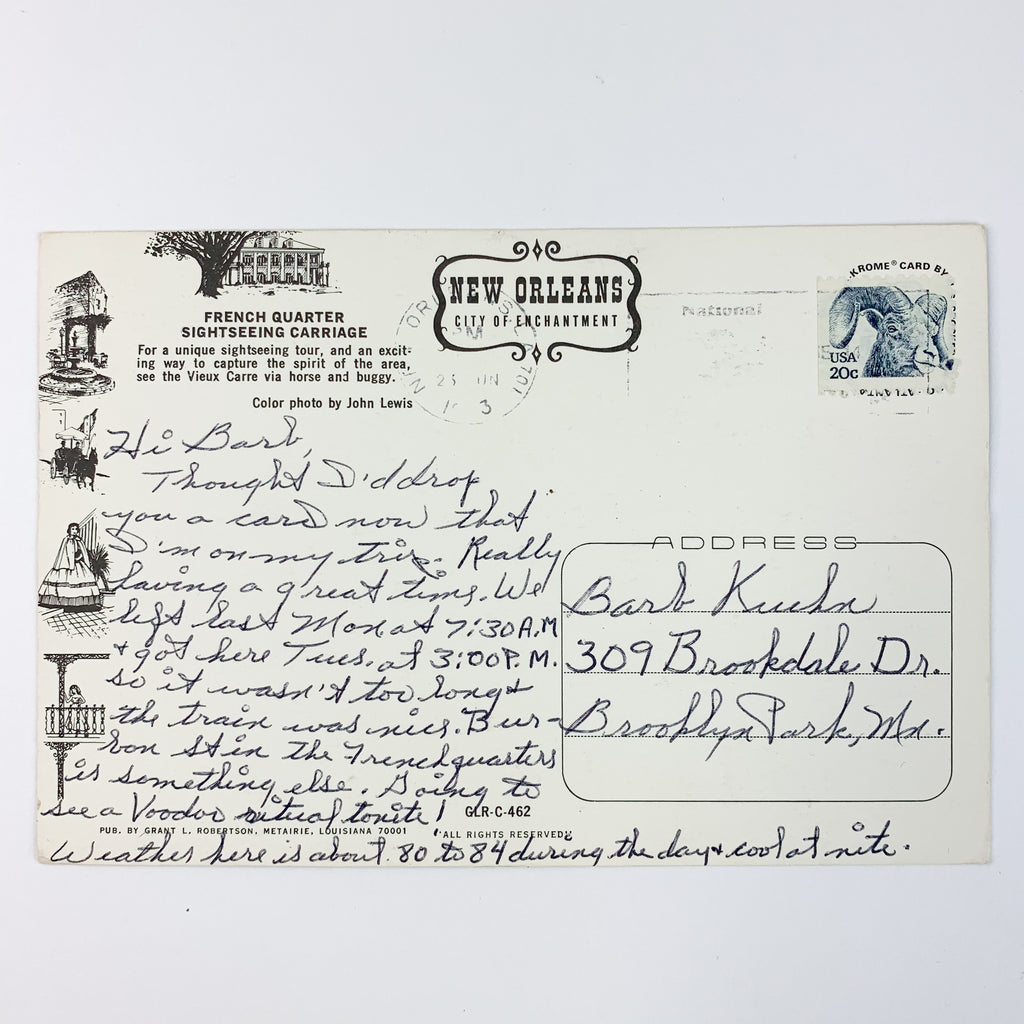 NEW ORLEANS
CITY OF ENCHANTMENT
FRENCH QUARTER
SIGHTSEEING CARRIAGE
For a unique sightseeing tour, and an excit-
ing way to capture the spirit of the area,
see the Vieux Carre via horse and buggy.
Color photo by John Lewis
National
KROME® CARD BY
USA
20c
ATLANTA
Hi Barb,
Thought I'd drop
you a card now that
I'm on my trip. Really
having a great time. We
left last Mon at 7:30 A.M
+ got here Tues. at 3:00 P.M.
so it wasn't too long +
the train was nice. Bur-
bon St in the French quarters
is something else. Going to
see a Voodoo ritual tonite!
Weather here is about 80 to 84 during the day + cool at nite.
ADDRESS
Barb Kuehn
309 Brookdale Dr.
Brooklyn Park, Mn.
GLR-C-462
PUB. BY GRANT L. ROBERTSON, METAIRIE, LOUISIANA 70001
ALL RIGHTS RESERVED